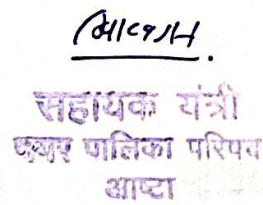 सहायक यंत्री
नगर पालिका परिषद
आष्टा